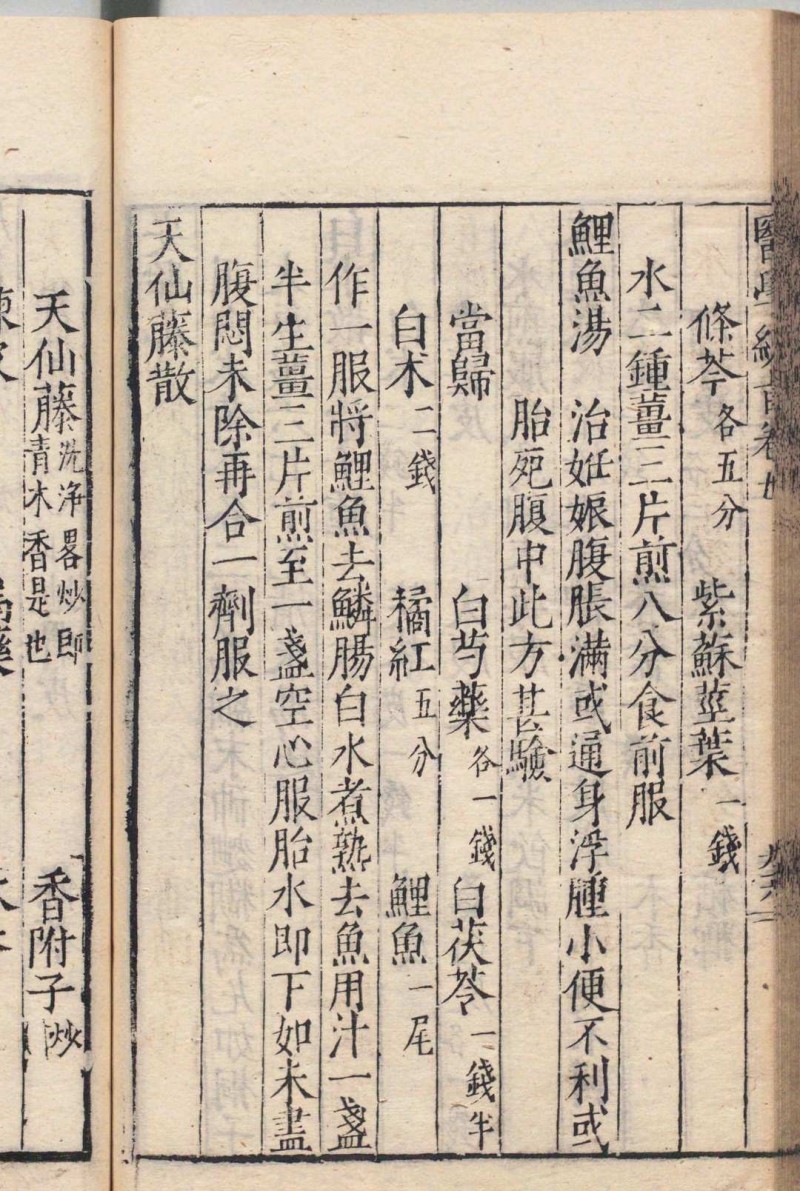 醫學綱目卷廿
條芩各五分 紫蘇莖葉一錢
水二鍾薑三片煎八分食前服
鯉魚湯 治妊娠腹脹滿或通身浮腫小便不利或
胎死腹中此方甚驗
當歸 白芍藥各一錢 白茯苓一錢半
白朮二錢 橘紅五分 鯉魚一尾
作一服將鯉魚去鱗腸白水煮熟去魚用汁一盞
半生薑三片煎至一盞空心服胎水即下如未盡
腹悶未除再合一劑服之
天仙藤散
天仙藤洗淨畧炒即青木香是也 香附子炒